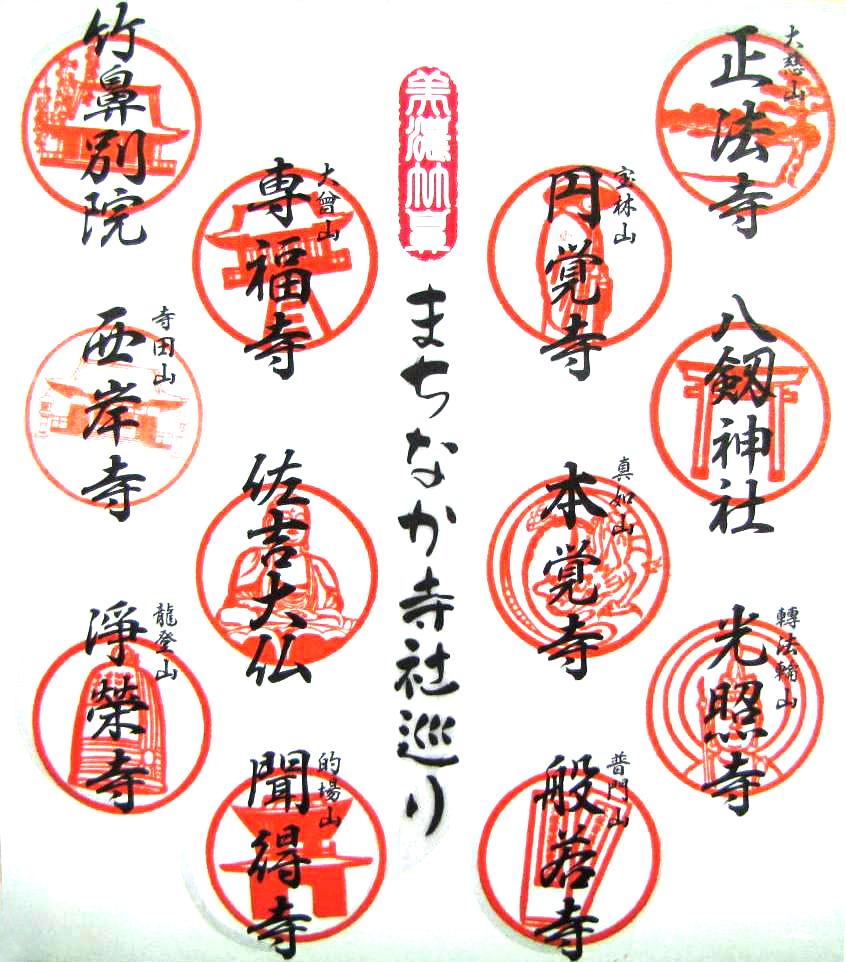 大慈山
正法寺
八剱神社
轉法輪山
光照寺
宝林山
円覚寺
真如山
本覚寺
普門山
般若寺
美濃竹鼻
まちなか寺社巡り
大曾山
専福寺
佐吉大仏
的場山
聞得寺
竹鼻別院
寺田山
西岸寺
龍登山
淨榮寺